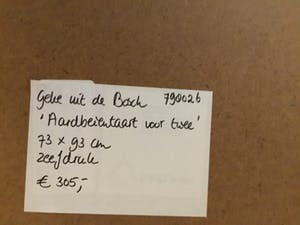 Gebe uit de Bosch 790026
'Aardbeientaart voor twee'
73 x 93 cm
zeefdruk
€ 305,-